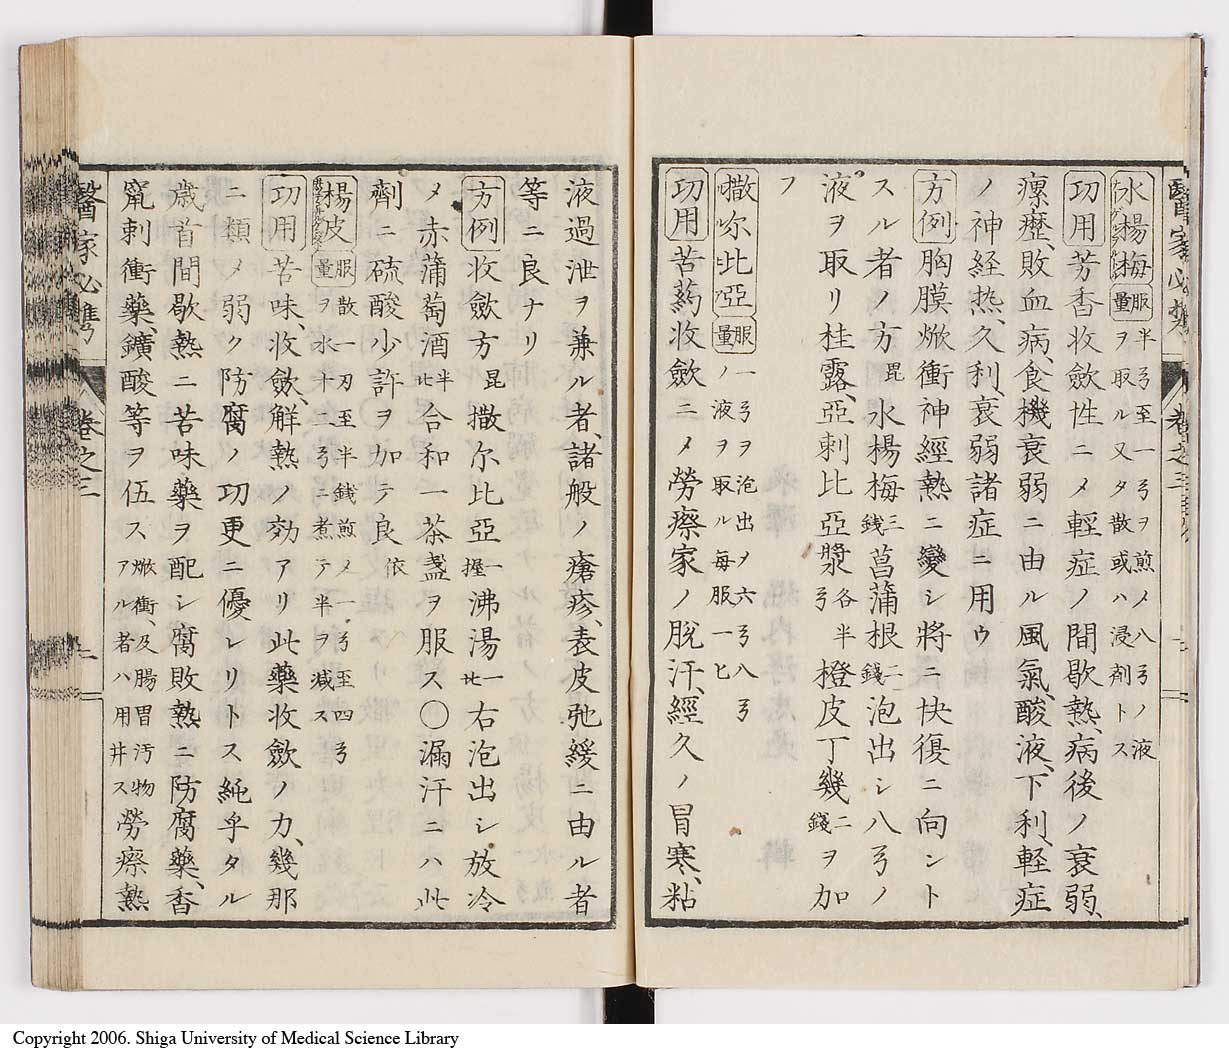 水楊梅 服量 半弓至一弓ヲ煎メ八弓ノ液ヲ取ル又タ散或ハ浸剤トス
功用 芳香收斂性ニメ輕症ノ間歇熱、病後ノ衰弱、
瘰癧、敗血病、食機衰弱ニ由ル風氣、酸液、下利、軽症
ノ神経热、久利、衰弱諸症ニ用ウ
方例 胸膜焮衝神經熱ニ變シ將ニ快復ニ向ント
スル者ノ方 毘 水楊梅三錢 菖蒲根二錢 泡出シ八弓ノ
液ヲ取リ桂露、亞刺比亞漿各半弓 橙皮丁幾二錢ヲ加
フ
撒尔比亞 服量 一弓ヲ泡出メ六弓八弓ノ液ヲ取ル每服一匕
功用 苦药收斂ニメ勞瘵家ノ脫汗、經久ノ冒寒、粘
液過泄ヲ兼ル者、諸般ノ瘡疹、表皮弛緩ニ由ル者
等ニ良ナリ
方例 收斂方 毘 撒尔比亞一握 沸湯一 右泡出シ放冷
メ赤蒲萄酒半 合和一茶盞ヲ服ス〇漏汗ニハ此
劑ニ硫酸少許ヲ加テ良 依
楊皮 服量 散一刃至半錢煎メ一弓至四弓ヲ水十二弓ニ煮テ半ヲ减ス
功用 苦味、收斂、解熱ノ効アリ此藥收斂ノ力、幾那
ニ類メ弱ク防腐ノ功更ニ優レリトス純乎タル
歲首間歇熱ニ苦味藥ヲ配シ腐敗熱ニ防腐藥、香
竄刺衝藥、鑛酸等ヲ伍ス 焮衝、及腸胃汚物アル者ハ用井ス 勞瘵熱
醫家必携
卷之三
Copyright 2006. Shiga University of Medical Science Library